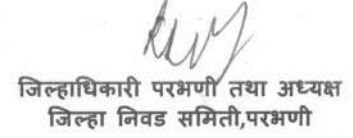 जिल्हाधिकारी परभणी तथा अध्यक्ष
जिल्हा निवड समिती,परभणी